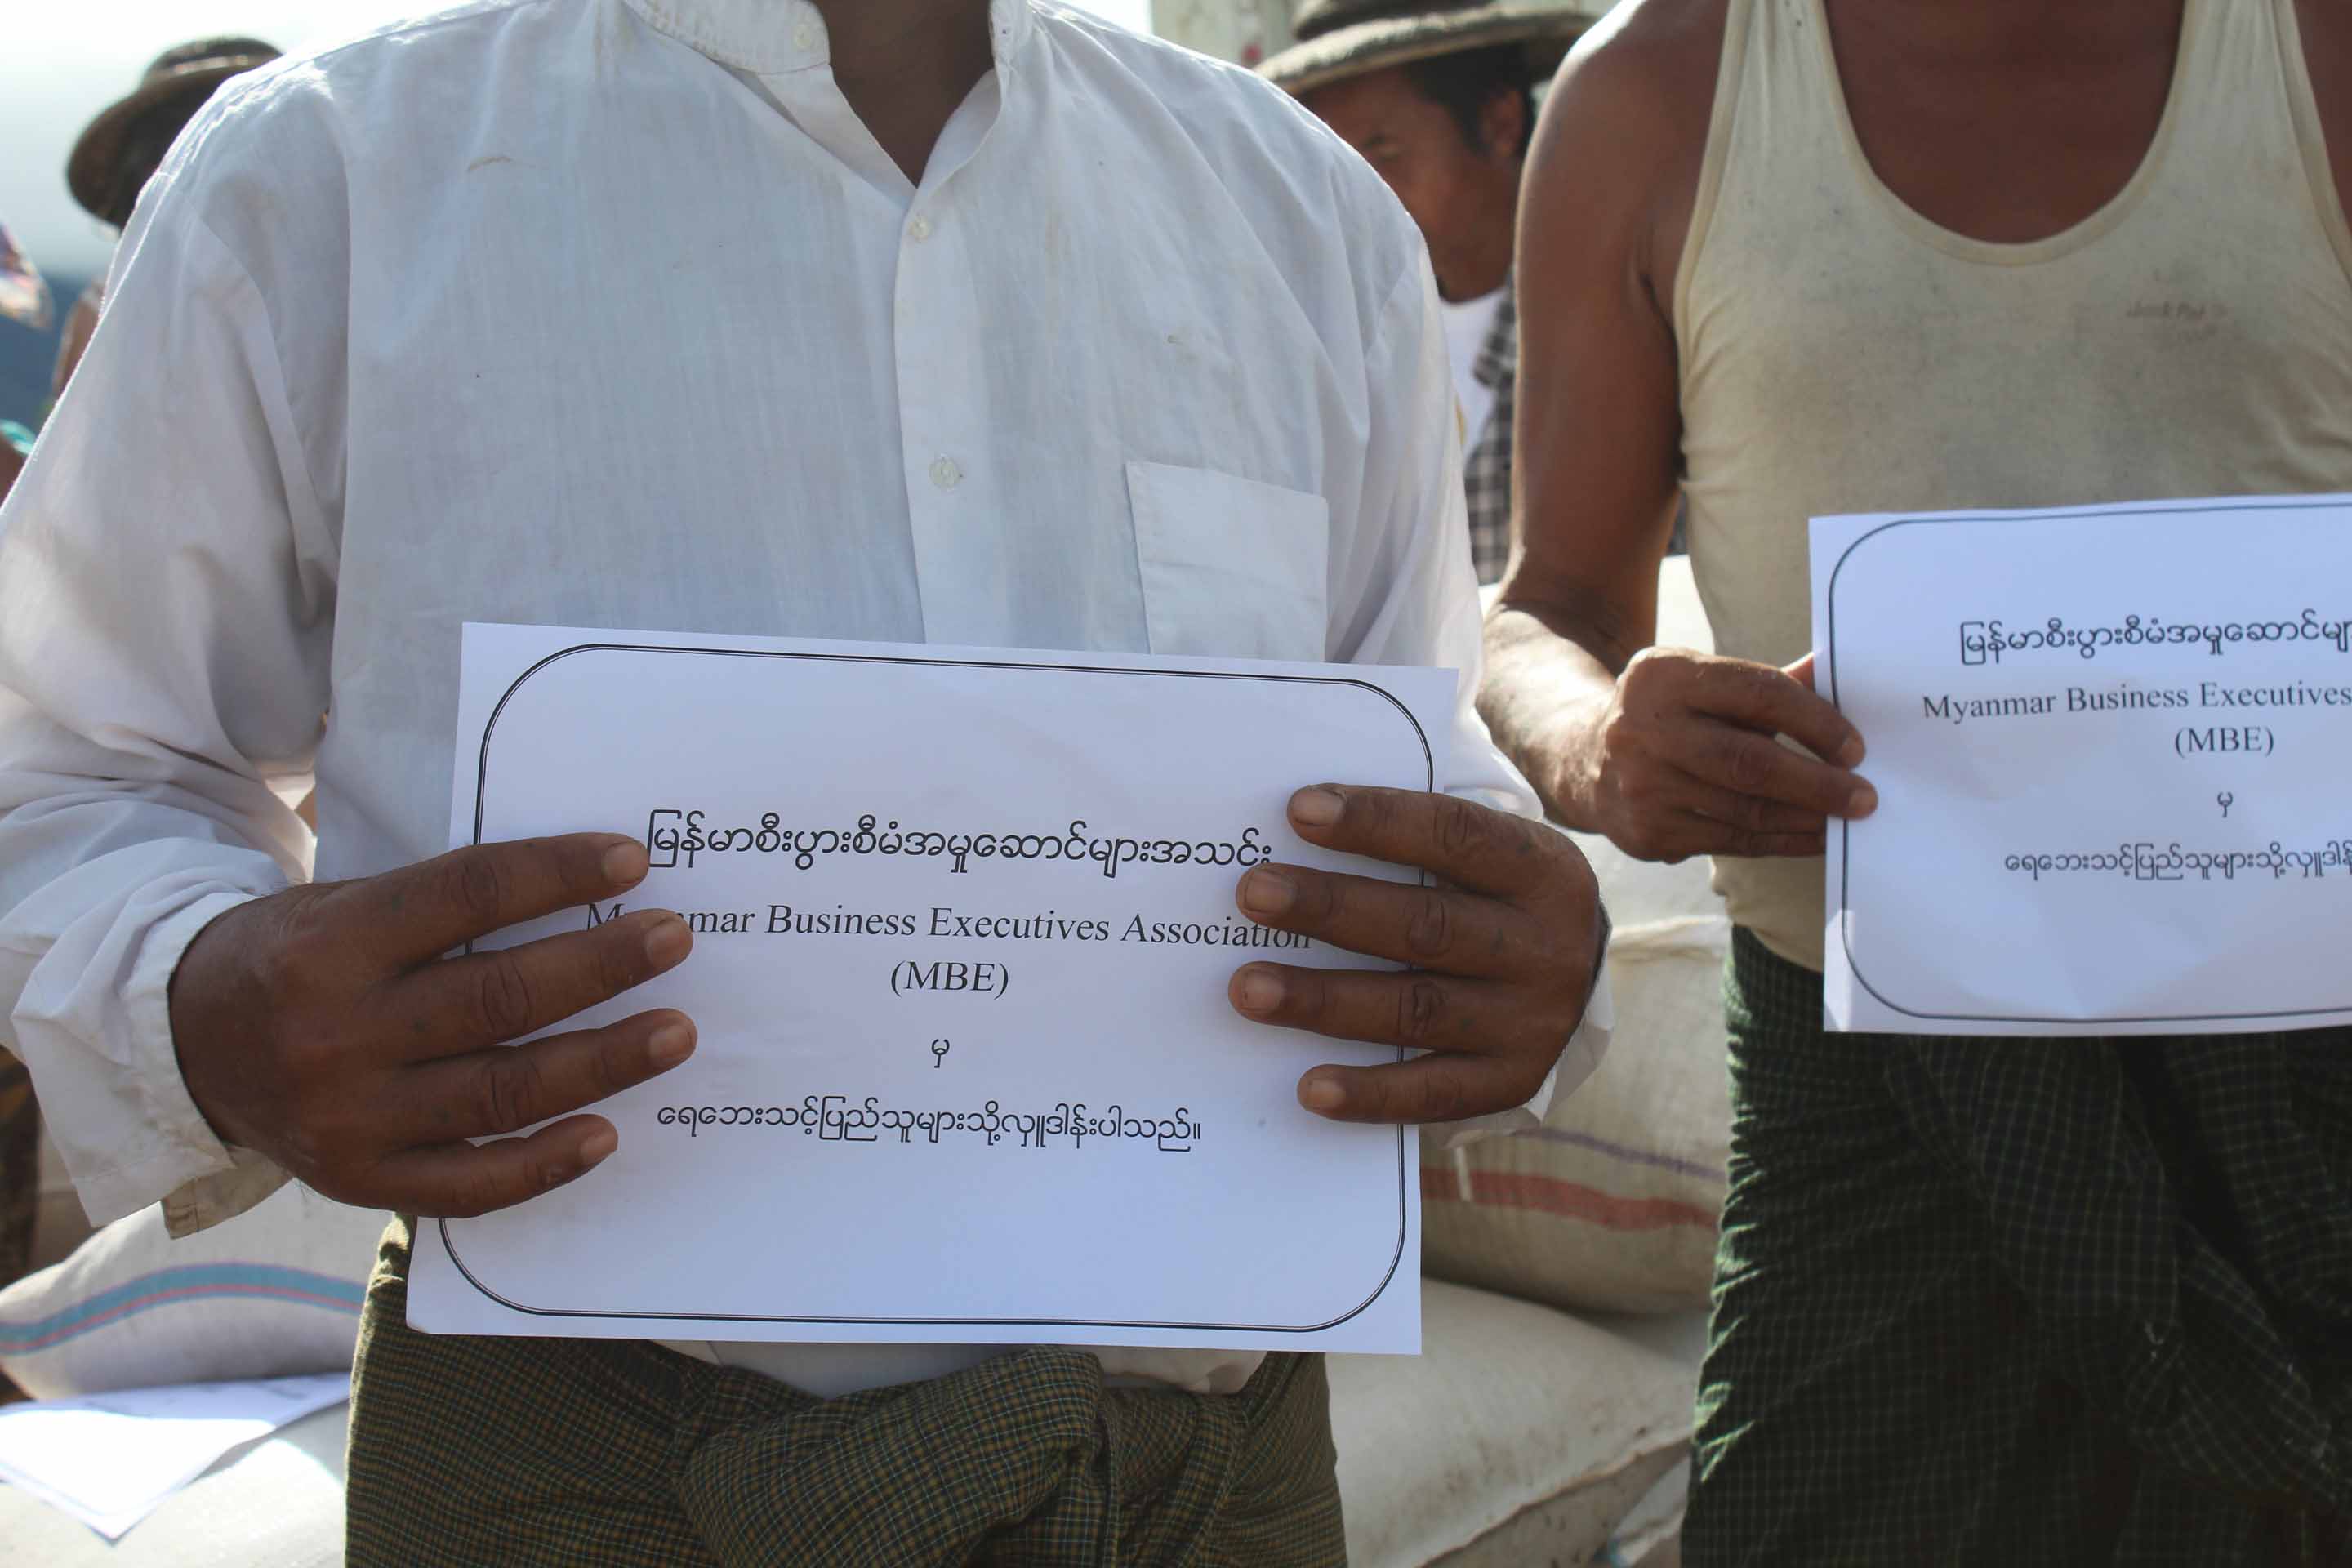 မြန်မာစီးပွားစီမံအမှုဆောင်များအသင်း
Myanmar Business Executives Association
(MBE)
မှ
ရေဘေးသင့်ပြည်သူများသို့လှူဒါန်းပါသည်။
မြန်မာစီးပွားစီမံအမှုဆောင်များ
Myanmar Business Executives
(MBE)
မှ
ရေဘေးသင့်ပြည်သူများသို့လှူဒါန်